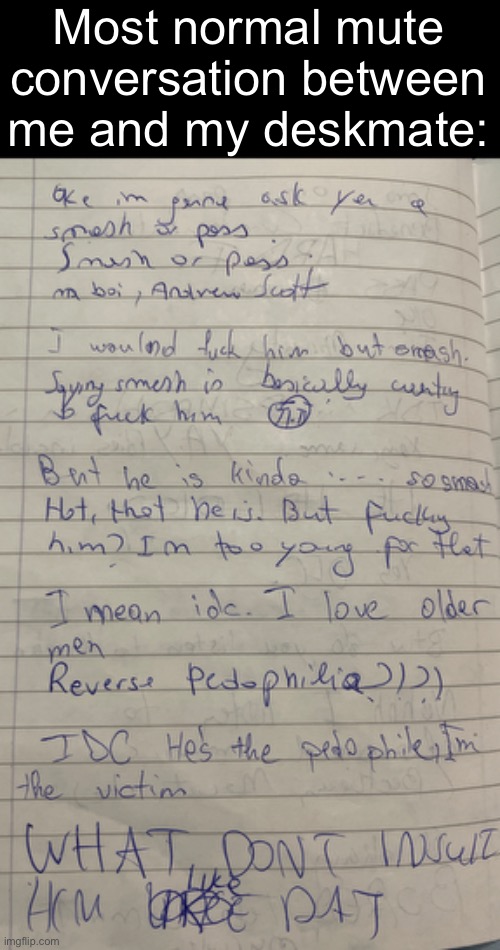 Most normal mute
conversation between
me and my deskmate:
Oke im gonna ask you a
smash or pass
Smash or pass:
ma boi, Andrew Scott
I would fuck him but smash.
Saying smash is basically wanting
to fuck him
But he is kinda ..... so smash
Hot, that he is. But fucking
him? Im too young for that
I mean idc. I love older
men
Reverse Pedophilia?)?)?)
IDC He's the pedophile, I'm
the victim
WHAT, DON'T INSULT
HIM LIKE DAT
imgflip.com